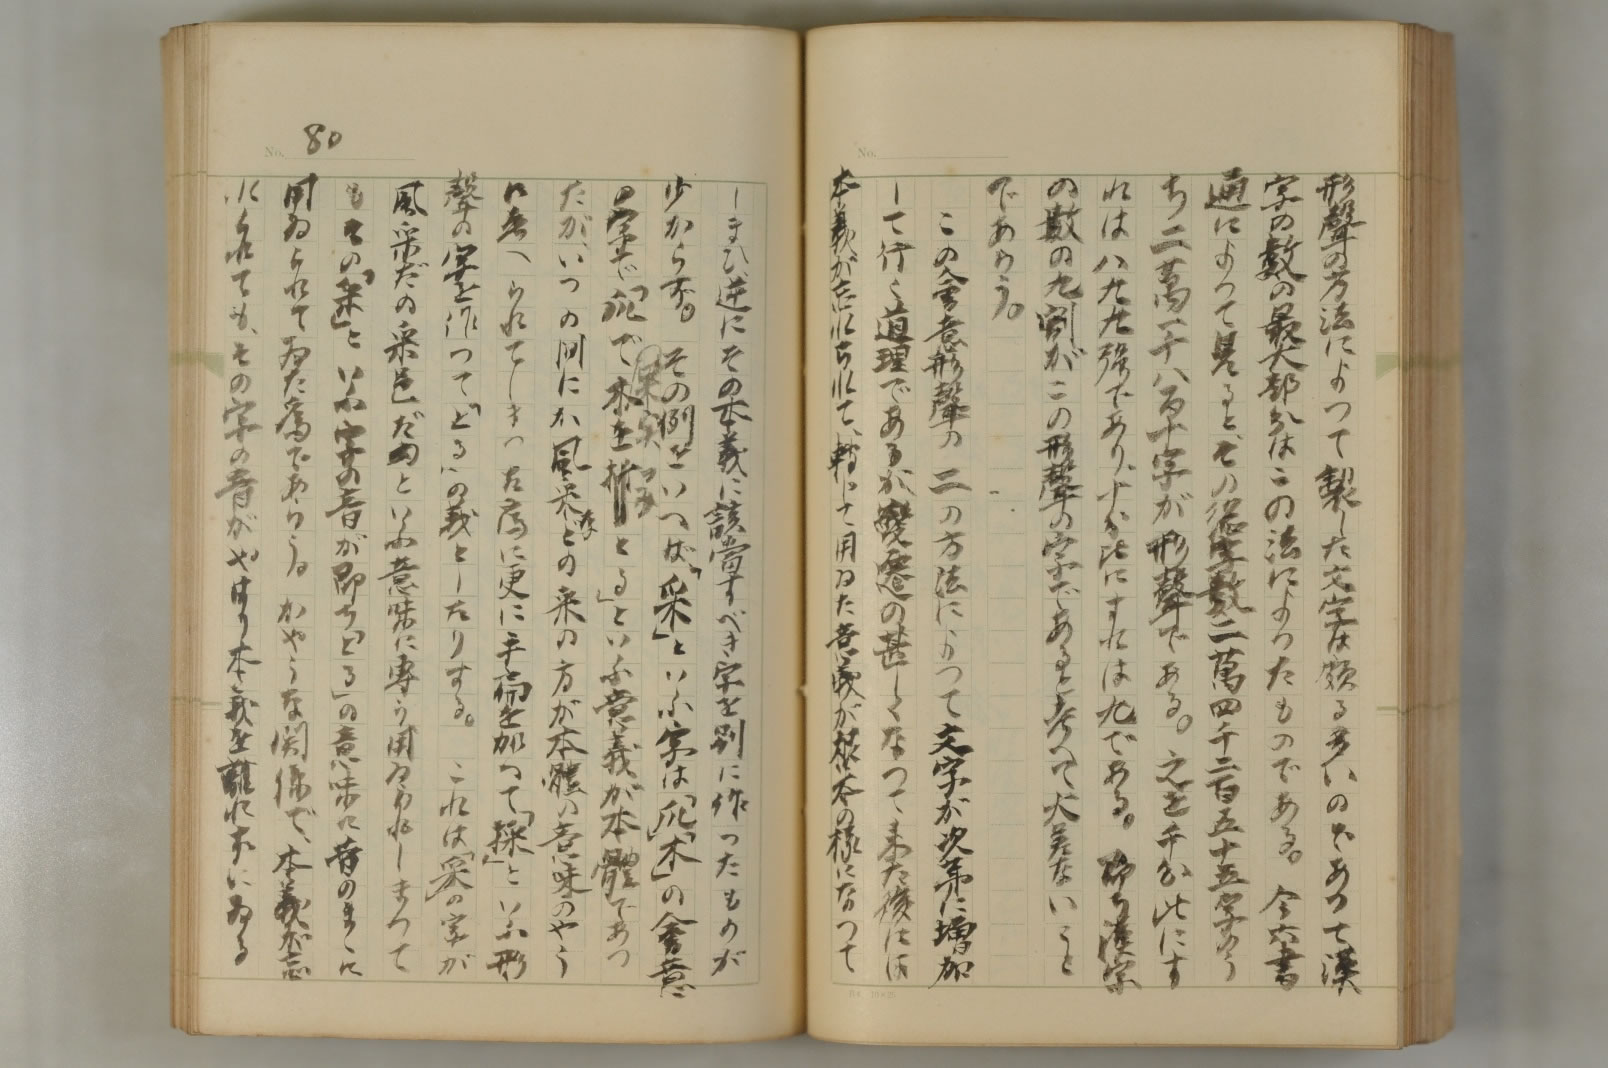 形聲の方法によつて製した文字は頗る多いのであつて漢
字の數の最大部分はこの法によつたものである。今六書
通によつて見るとその總字數二萬四千二百五十五字のう
ち二萬一千八百十字が形聲である。之を千分比にす
れは八九九強であり、十分比にすれは九である。即ち漢字
の數の九割がこの形聲の字であると考へて大差ないこと
であらう。
この會意形聲の二の方法によつて文字が次第に增加
して行く道理であるが、變遷の甚しくなつて来た後には
本義が忘れられて、轉じて用ゐた意義が根本の樣になつて
No. 80
しまひ、逆にその本義に該當すべき字を別に作つたものが
少からず。その例をいへば「采」といふ字は「爪」「木」の會意
の字で「爪」で木をとる」といふ意義が本體であつ
たがいつの間にか風采との采の方が本體の意味のやう
に考へられてしまつた爲に更に手扁を加へて「採」といふ形
聲の字を作つて「とる」の義としたりする。これは「采」の字が
風采だの采邑だのといふ意味に專ら用ゐられしまつて
もその「采」といふ字の音が即ち「とる」の意味に昔のまゝに
用ゐられてゐた爲であらう。かやうな関係で、本義が忘
れられても、その字の音がやはり本義を離れずにゐる
No.